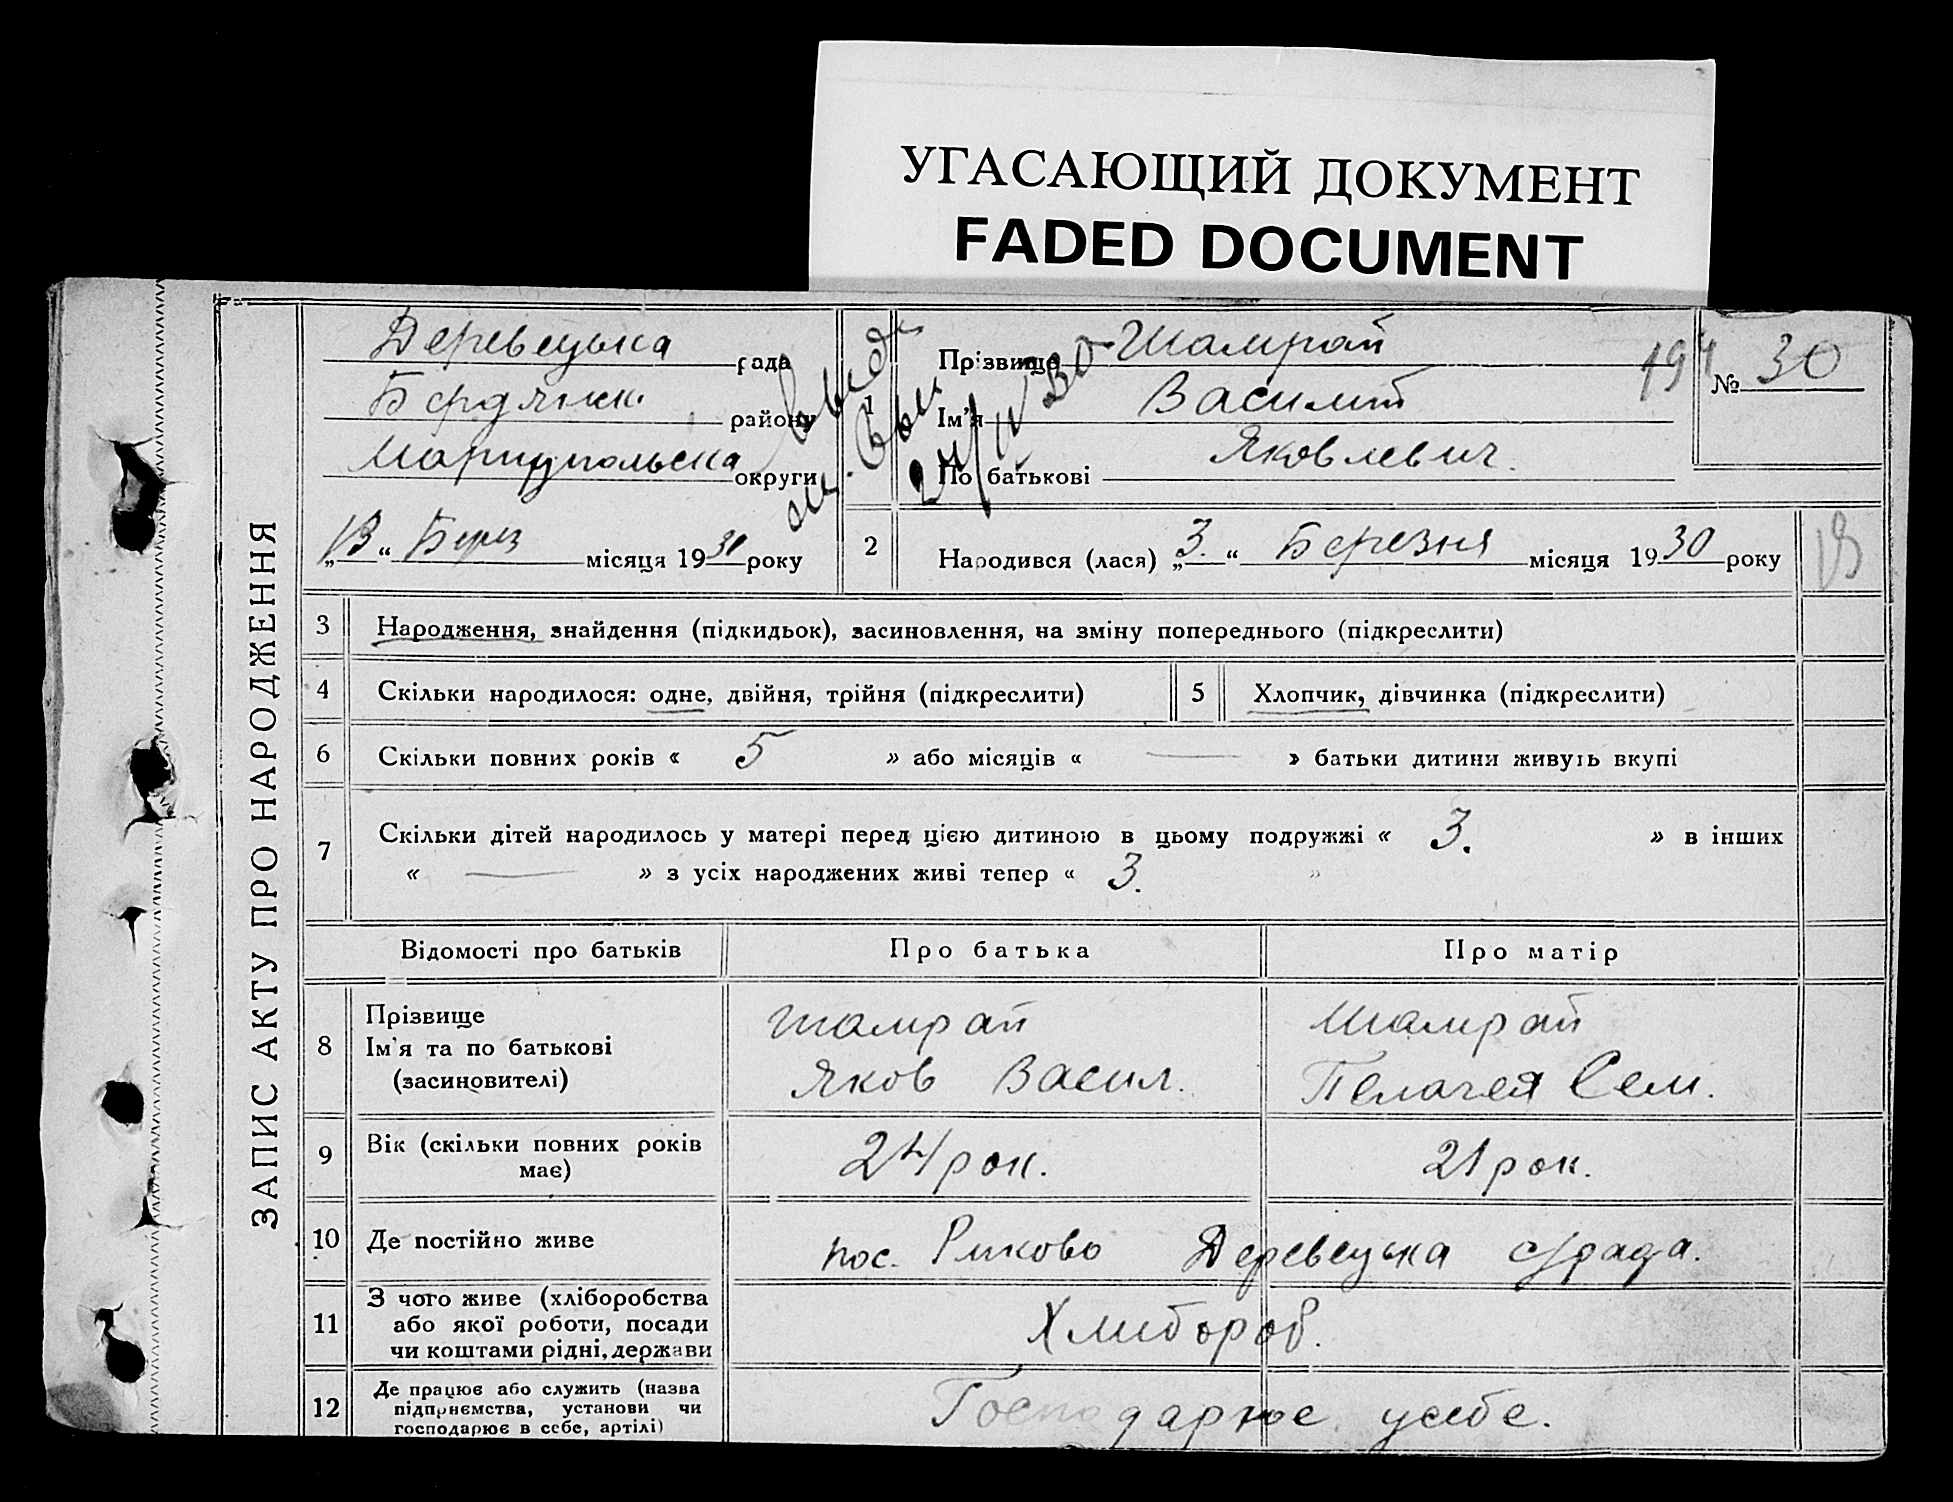 УГАСАЮЩИЙ ДОКУМЕНТ
FADED DOCUMENT
ЗАПИС АКТУ ПРО НАРОДЖЕННЯ
Деревецька рада
Бердянськ. району
Маріупольська округи
„13“ Берез місяця 1930 року
1
Прізвище Шамрай
Ім'я Василий
По батькові Яковлевич.
194
№ 30
24/IV 30
2 Народився (лася) „3.“ Березня місяця 1930 року
3 Народження, знайдення (підкидьок), засиновлення, на зміну попереднього (підкреслити)
4 Скільки народилося: одне, двійня, трійня (підкреслити)
5 Хлопчик, дівчинка (підкреслити)
6 Скільки повних років « 5 » або місяців « — » батьки дитини живуть вкупі
7 Скільки дітей народилось у матері перед цією дитиною в цьому подружжі « 3. » в інших
« — » з усіх народжених живі тепер « 3. »
Відомості про батьків Про батька Про матір
8 Прізвище
Ім'я та по батькові
(засиновителі)
Шамрай
Яков Васил.
Шамрай
Пелагея Сем.
9 Вік (скільки повних років
має)
24 рок.
21 рок.
10 Де постійно живе
пос. Риково Деревецька с/рада.
11 З чого живе (хліборобства
або якої роботи, посади
чи коштами рідні, держави
Хлибороб.
12 Де працює або служить (назва
підприємства, установи чи
господарює в себе, артілі)
Господарює усебе.